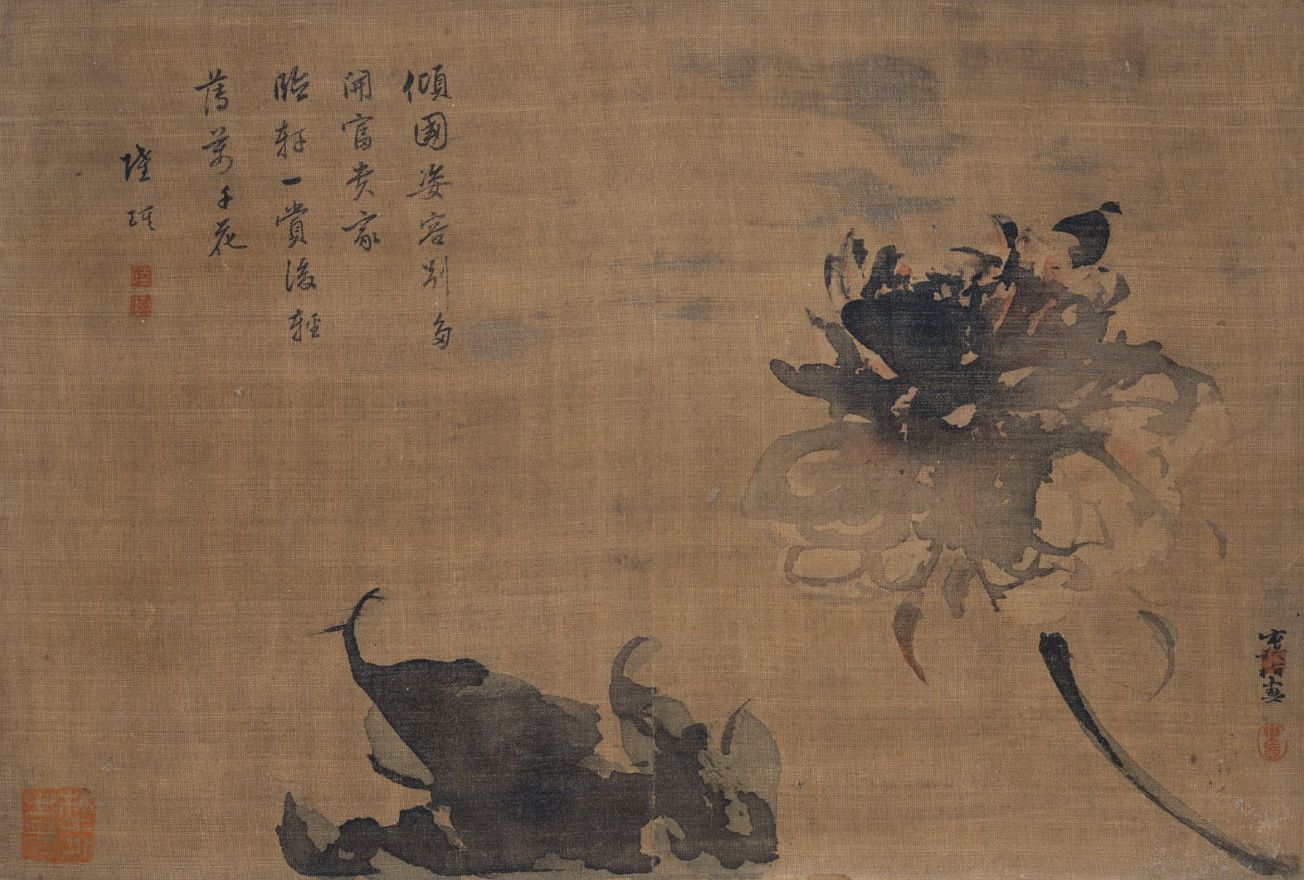 傾國姿容別多
開富貴家
臨軒一賞後輕
薄萬千花
指画